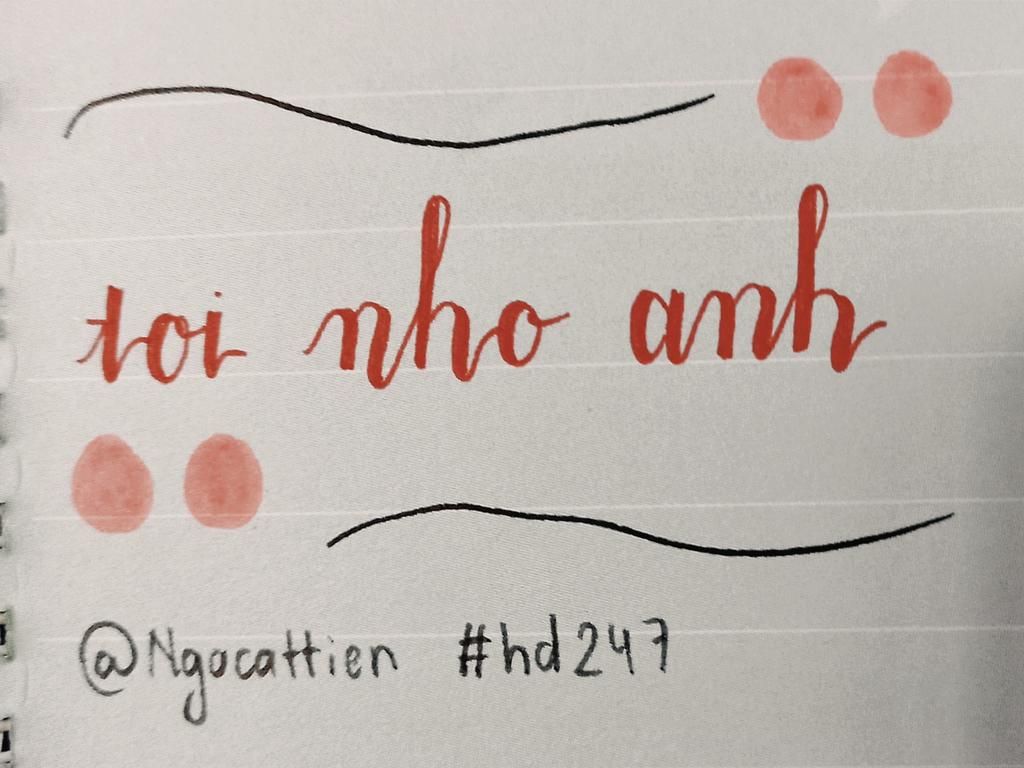 toi nho anh
@Ngocattien #hd247